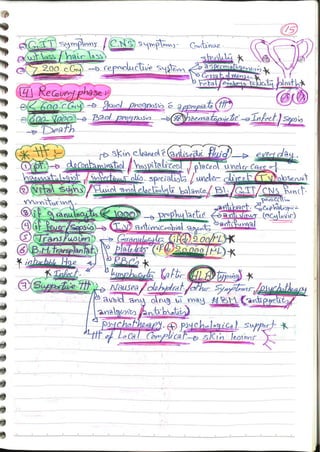 15
G.I.T symptoms / C.N.S symptoms continue
wt loss / hair loss
> 200 cGy → reproductive system → sterility
→ aspermatogenesis
→ Cessat. of menses
→ Fetal
(4) Recovery phase:
< 600 cGy → good prognosis č appropriate ttt
600 - → Bad prognosis → Haematopoietic → Infect / Sepsis
→ Death
* ttt: → skin cleaned č antiseptic → every day
① pt. → decontaminated / hospitalized / placed under care of
haematologist / infectious dis. specialists / under direct T.V observat
② Vital signs / Fluid and electrolyte balance / Bl. / G.IT / CNS funct.
monitoring
③ if granulocytes < 1000 → prophylactic → antibact.
→ antiviral (acyclovir)
→ antifungal
④ if Fever / Sepsis → I.V antimicrobial agents
⑤ Transfusion → Granulocytes (if < 500/ML) *
⑥ B.M. transplantat → platelets (if < 20,000/ML) *
→ RBCs *
→ Lymphocytes (after HLA typing) *
⑦ Supportive ttt → Nausea / dehydrat / other symptoms / psychotherapy
→ avoid any drug ū may ↓ B.M (antipyretics /
analgesics / antibiotics)
→ psychotherapy ⊕ psychological support *
→ ttt of Local Complicat → skin lesions